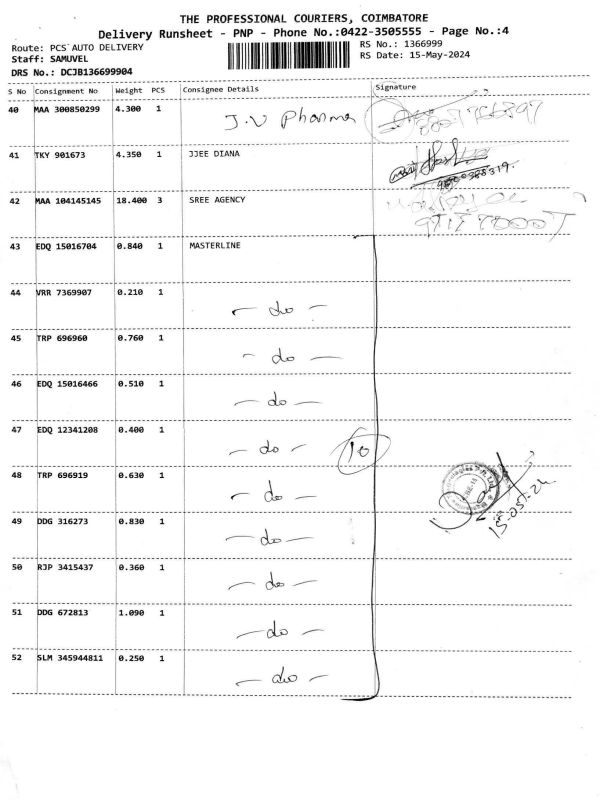 THE PROFESSIONAL COURIERS, COIMBATORE
Delivery Runsheet - PNP - Phone No.:0422-3505555 - Page No.:4
Route: PCS AUTO DELIVERY
RS No.: 1366999
Staff: SAMUVEL
RS Date: 15-May-2024
DRS No.: DCJB136699904
S No Consignment No Weight PCS Consignee Details Signature
40 MAA 300850299 4.300 1 J.V Pharma
41 TKY 901673 4.350 1 JJEE DIANA
42 MAA 104145145 18.400 3 SREE AGENCY
43 EDQ 15016704 0.840 1 MASTERLINE
44 VRR 7369907 0.210 1 - do -
45 TRP 696960 0.760 1 - do -
46 EDQ 15016466 0.510 1 - do -
47 EDQ 12341208 0.400 1 - do - 10
48 TRP 696919 0.630 1 - do -
49 DDG 316273 0.830 1 - do -
15-05-24
50 RJP 3415437 0.360 1 - do -
51 DDG 672813 1.090 1 - do -
52 SLM 345944811 0.250 1 - do -